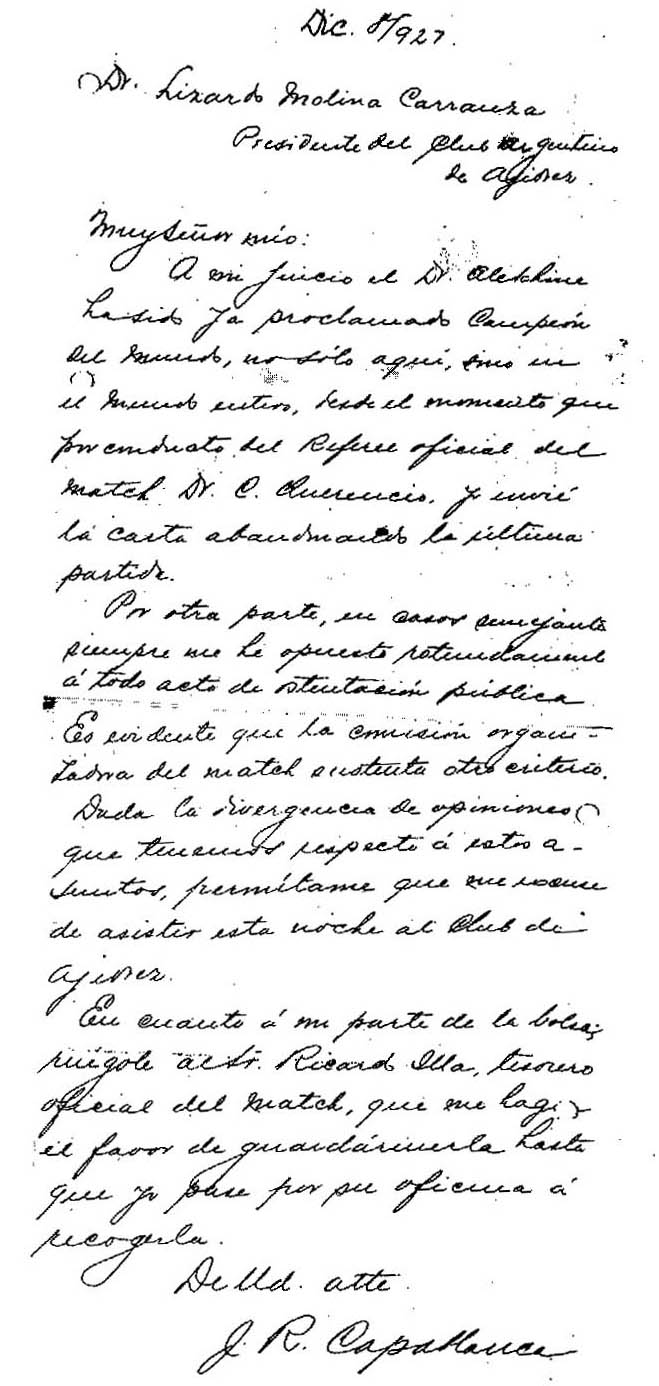 Dic. 8/927.
Dr. Lizardo Molina Carranza
Presidente del Club Argentino
de Ajedrez.
Muy Señor mío:
A mi juicio el Dr. Alekhine
ha sido ya proclamado Campeón
del Mundo, no sólo aquí, sino en
el Mundo entero, desde el momento que
por conducto del Referee oficial del
match Dr. C. Querencio, yo envié
la carta abandonando la última
partida.
Por otra parte, en casos semejantes
siempre me he opuesto rotundamente
á todo acto de ostentación pública
Es evidente que la comisión organi-
zadora del match sustenta otro criterio.
Dada la divergencia de opiniones
que tenemos respecto á estos a-
suntos, permítame que me excuse
de asistir esta noche al Club de
Ajedrez.
En cuanto á mi parte de la bolsa,
ruégole al Sr. Ricardo Illa, tesorero
oficial del Match, que me haga
el favor de guardármerla hasta
que yo pase por su oficina á
recogerla.
De Ud. atte.
J. R. Capablanca